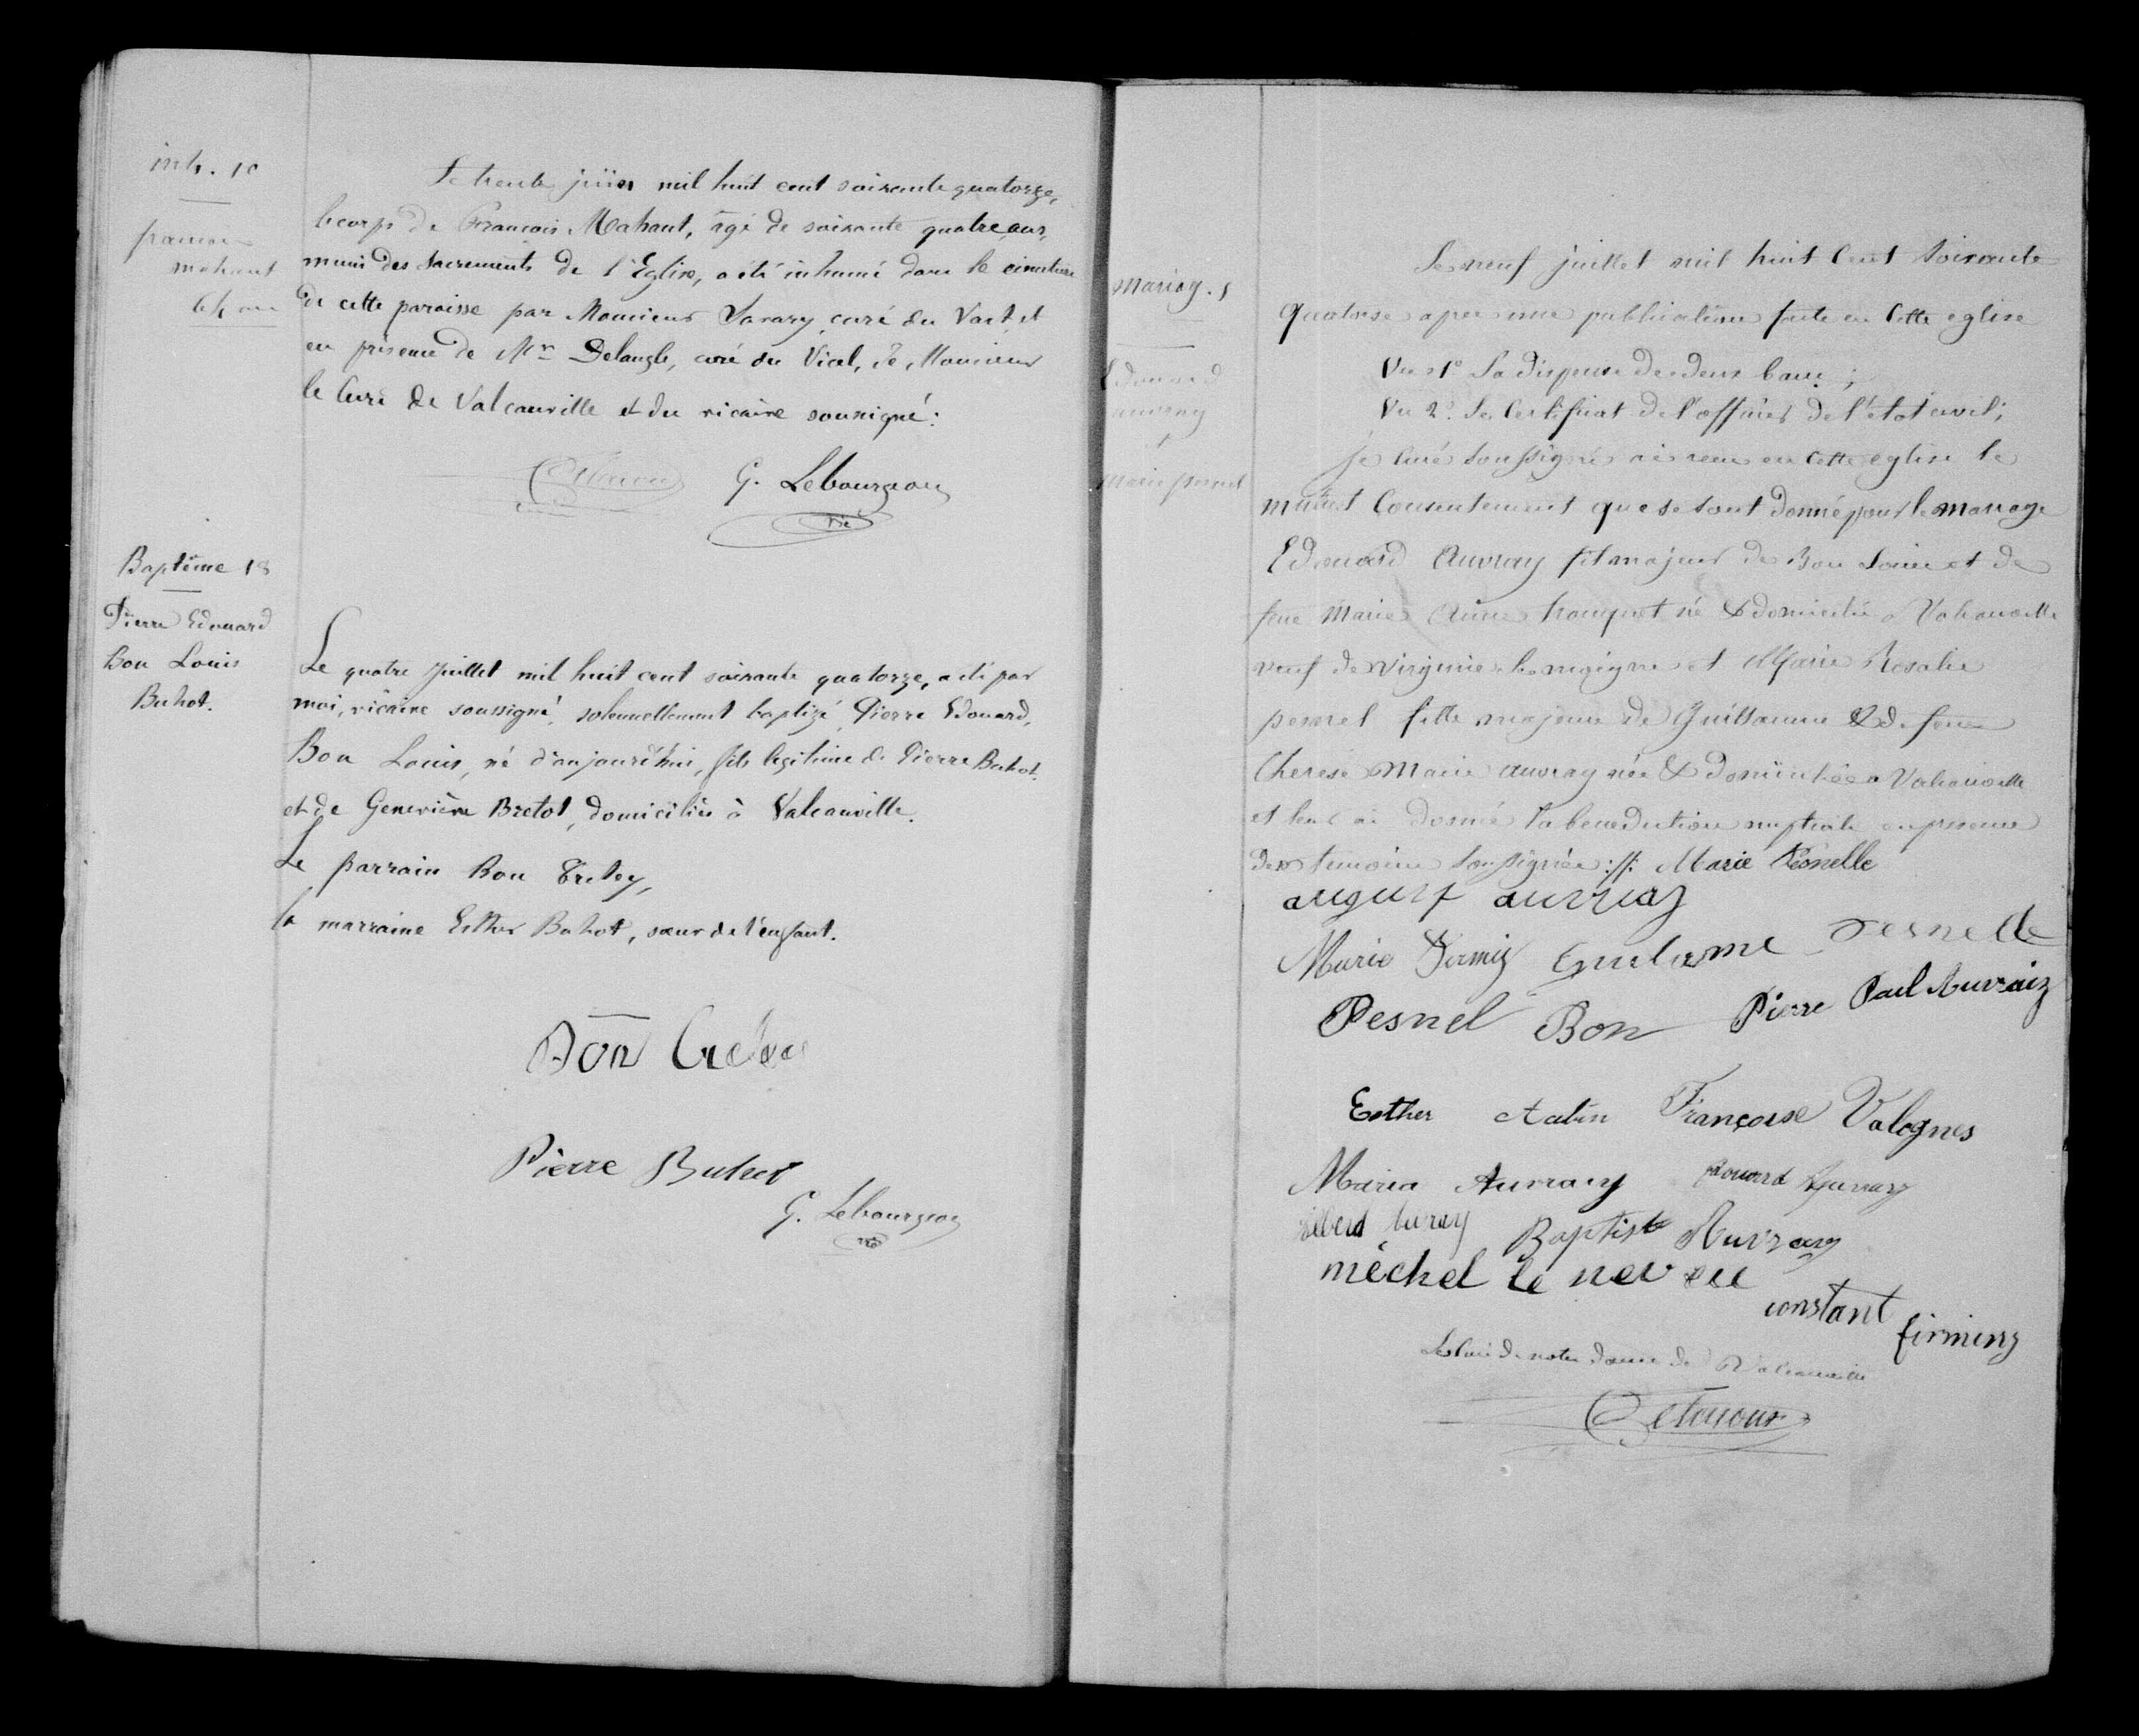 inh. 10
françois
mahaut
64 ans
Le trente juin mil huit cent soixante quatorze,
le corps de François Mahaut, âgé de soixante quatre ans,
muni des Sacrements de l'Eglise, a été inhumé dans le cimetière
de cette paroisse par Monsieur Savary, curé du Vast, et
en présence de Mr Delangle, curé du Vicel, de Monsieur
le Curé de Valcanville et du vicaire soussigné:
G. Lebourgeois
vic
Baptême 18
Pierre Edouard
Bon Louis
Buhot.
Le quatre Juillet mil huit cent soixante quatorze, a été par
moi, vicaire soussigné, solennellement baptizé Pierre Edouard,
Bon Louis, né d'aujourd'hui, fils légitime de Pierre Buhot
et de Geneviève Bretot, domiciliés à Valcanville.
Le parrain Bon
la marraine Esther Buhot, sœur de l'enfant.
Bon
Pierre Buhot
G. Lebourgeois
vic
mariag. 5
Edouard
auvray
et
marie pesnel
Le neuf juillet mil huit Cent Soixante
quatorse apres une publication faite en Cette eglise
Vu 1° La dispense de deux bans ;
Vu 2°. Le Certificat de l'officier de l'état civil;
Je Curé Soussigné ai recu en Cette eglise le
mutuel Consentement que se sont donné pour le mariage
Edouard Auvray fils majeur de Bon Louis et de
feue Marie Anne né & domicilié a Valcanville
veuf de virginie et Marie Rosalie
pesnel fille majeure de Guillaume & de feue
therese Marie auvray née & domiciliée a Valcanville
et leur ai donné la benediction nuptiale en presence
des temoins Soussignés :/: Marie Pesnelle
august auvray
Marie Guilame Pesnelle
Pesnel Bon Pierre Paul Auvraiy
Esther Françoise Valognes
Maria Auvray Edouard Auvray
Albert Auvray Baptiste Auvray
méchel le neveu
constant
firminy
Le Curé de notre dame de Valcanville